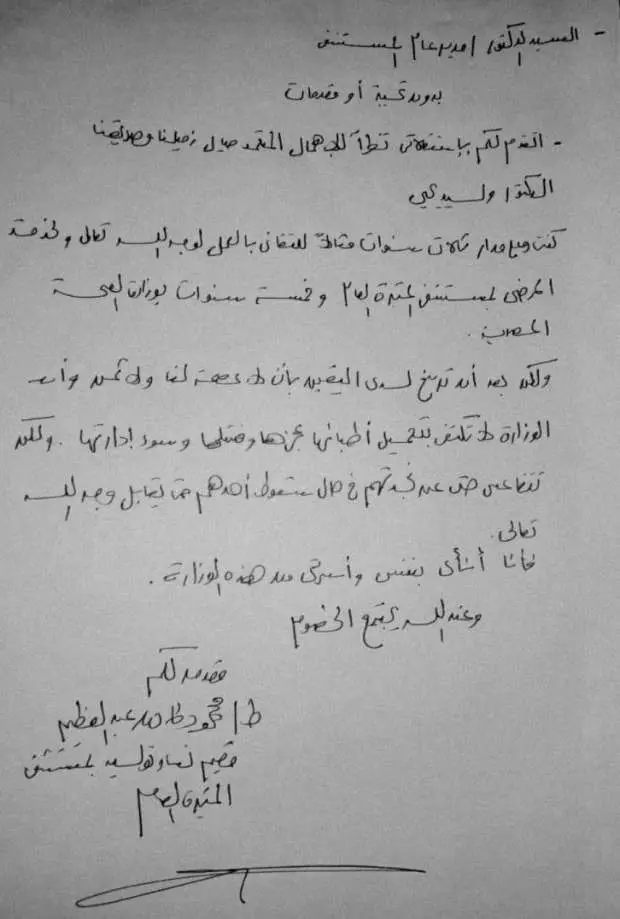 - السيد الدكتور / مدير عام المستشفى
بدون تحية أو مقدمات
- أتقدم لكم بإستقالتى نظراً للإهمال المتعمد حيال زميلنا وصديقنا
الدكتور وليد يحيي
كنت وعلى مدار ثلاث سنوات مثالاً للتفانى بالعمل لوجه الله تعالى ولخدمة
المرضى بمستشفى المنيرة العام و خمسة سنوات بوزارة الصحة
المصرية .
ولكن بعد أن ترسخ لدى اليقين بأن لا عصمة لنا ولا ثمن وأن
الوزارة لا تكتفى بتحميل أطبائها عجزها وفشلها وسوء إدارتها . ولكن
تتقاعس حتى عن نجدتهم فى حال سقوط أحدهم حتى يقابل وجه الله
تعالى .
فأنا أنأى بنفسى وأسرتى من هذه الوزارة .
وعند الله تجتمع الخصوم
مقدمه لكم
ط / محمود طارق عبد العظيم
مقيم نساء وتوليد بمستشفى
المنيرة العام